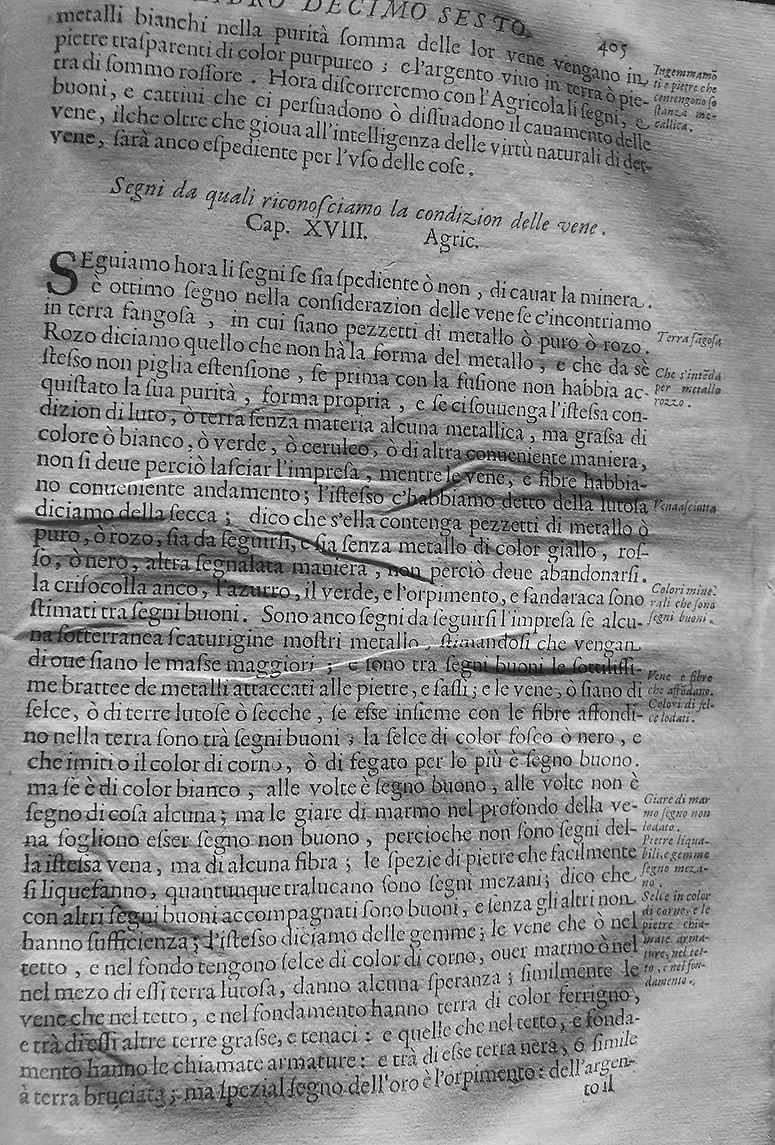 LIBRO DECIMO SESTO.
405
metalli bianchi nella purità ſomma delle lor vene vengano in
pietre traſparenti di color purpureo; e l'argento viuo in terra ò pie-
tra di ſommo roſſore. Hora diſcorreremo con l'Agricola li ſegni, e
buoni, e cattiui che ci perſuadono ò diſſuadono il cauamento delle
vene, ilche oltre che gioua all'intelligenza delle virtù naturali di det-
vene, ſarà anco eſpediente per l'vſo delle coſe.
Ingemmamō
ti e pietre che
contengono ſo
ſtanza me-
tallica.
Segni da quali riconoſciamo la condizion delle vene.
Cap. XVIII. Agric.
SEguiamo hora li ſegni ſe ſia ſpediente ò non, di cauar la minera.
è ottimo ſegno nella conſiderazion delle vene ſe c'incontriamo
in terra fangoſa, in cui ſiano pezzetti di metallo ò puro ò rozo.
Rozo diciamo quello che non hà la forma del metallo, e che da sè
ſteſſo non piglia eſtenſione, ſe prima con la fuſione non habbia ac-
quiſtato la ſua purità, forma propria, e ſe ci ſouuenga l'iſteſsa con-
dizion di luto, ò terra ſenza materia alcuna metallica, ma graſsa di
colore ò bianco, ò verde, ò ceruleo, ò di altra conueniente maniera,
non ſi deue perciò laſciar l'impreſa, mentre le vene, e fibre habbia-
no conueniente andamento; l'iſteſso c'habbiamo detto della lutoſa
diciamo della ſecca; dico che s'ella contenga pezzetti di metallo ò
puro, ò rozo, ſia da ſeguirſi, e ſia ſenza metallo di color giallo, roſ-
ſo, ò nero, altra ſegnalata maniera, non perciò deue abandonarſi.
la criſocolla anco, l'azurro, il verde, e l'orpimento, e ſandaraca ſono
ſtimati tra ſegni buoni. Sono anco ſegni da ſeguirſi l'impreſa ſe alcu-
na ſotterranea ſcaturigine moſtri metallo, ſtimandoſi che vengan
di oue ſiano le maſse maggiori; e ſono tra ſegni buoni le ſottiliſſi-
me brattee de metalli attaccati alle pietre, e ſaſſi; e le vene, ò ſiano di
ſelce, ò di terre lutoſe ò ſecche, ſe eſse inſieme con le fibre affondi-
no nella terra ſono trà ſegni buoni; la ſelce di color foſco ò nero, e
che imiti o il color di corno, ò di fegato per lo più è ſegno buono.
ma ſe è di color bianco, alle volte è ſegno buono, alle volte non è
ſegno di coſa alcuna; ma le giare di marmo nel profondo della ve-
na ſogliono eſser ſegno non buono, percioche non ſono ſegni del-
la iſteſsa vena, ma di alcuna fibra; le ſpezie di pietre che facilmente
ſi liquefanno, quantunque tralucano ſono ſegni mezani; dico che
con altri ſegni buoni accompagnati ſono buoni, e ſenza gli altri non
hanno ſufficienza; l'iſteſso diciamo delle gemme; le vene che ò nel
tetto, e nel fondo tengono ſelce di color di corno, ouer marmo ò nel
nel mezo di eſſi terra lutoſa, danno alcuna ſperanza; ſimilmente le
vene che nel tetto, e nel fondamento hanno terra di color ferrigno,
e trà di eſſi altre terre graſse, e tenaci: e quelle che nel tetto, e fonda-
mento hanno le chiamate armature: e trà di eſse terra nera, ò ſimile
à terra bruciata; ma ſpezial ſegno dell'oro è l'orpimento: dell'argen-
to il
Terra fāgoſa
Che s'intēda
per metallo
rozzo.
Vena aſciutta
Colori mine-
rali che ſono
ſegni buoni.
Vene e fibre
che affōdano.
Colori di ſel-
ce lodati.
Giare di mar
mo ſegno non
lodato.
Pietre liqua-
bili, e gemme
ſegno meza-
no.
Selce in color
di corno, e le
pietre chia-
mate arma-
ture, nel tet-
to, e nel fon-
damento.